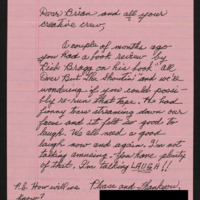 Dear Brian and all your
creative crew,
A couple of months ago
you had a book review by
Rick Bragg on his book "All
Over But The Shoutin" and we're
wondering if you could possi-
bly re-run that tape. We had
funny tears streaming down our
faces and it felt so good to
laugh. We all need a good
laugh now and again. I'm not
talking amusing. You have plenty
of that, I'm talking LAUGH!!
P.S. How will we
know?
Please and Thankyou,